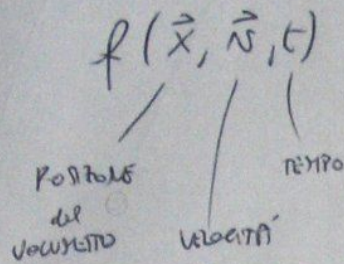 f(x⃗, v⃗, t)
POSIZIONE
del
VOLUMETTO
VELOCITÀ
TEMPO